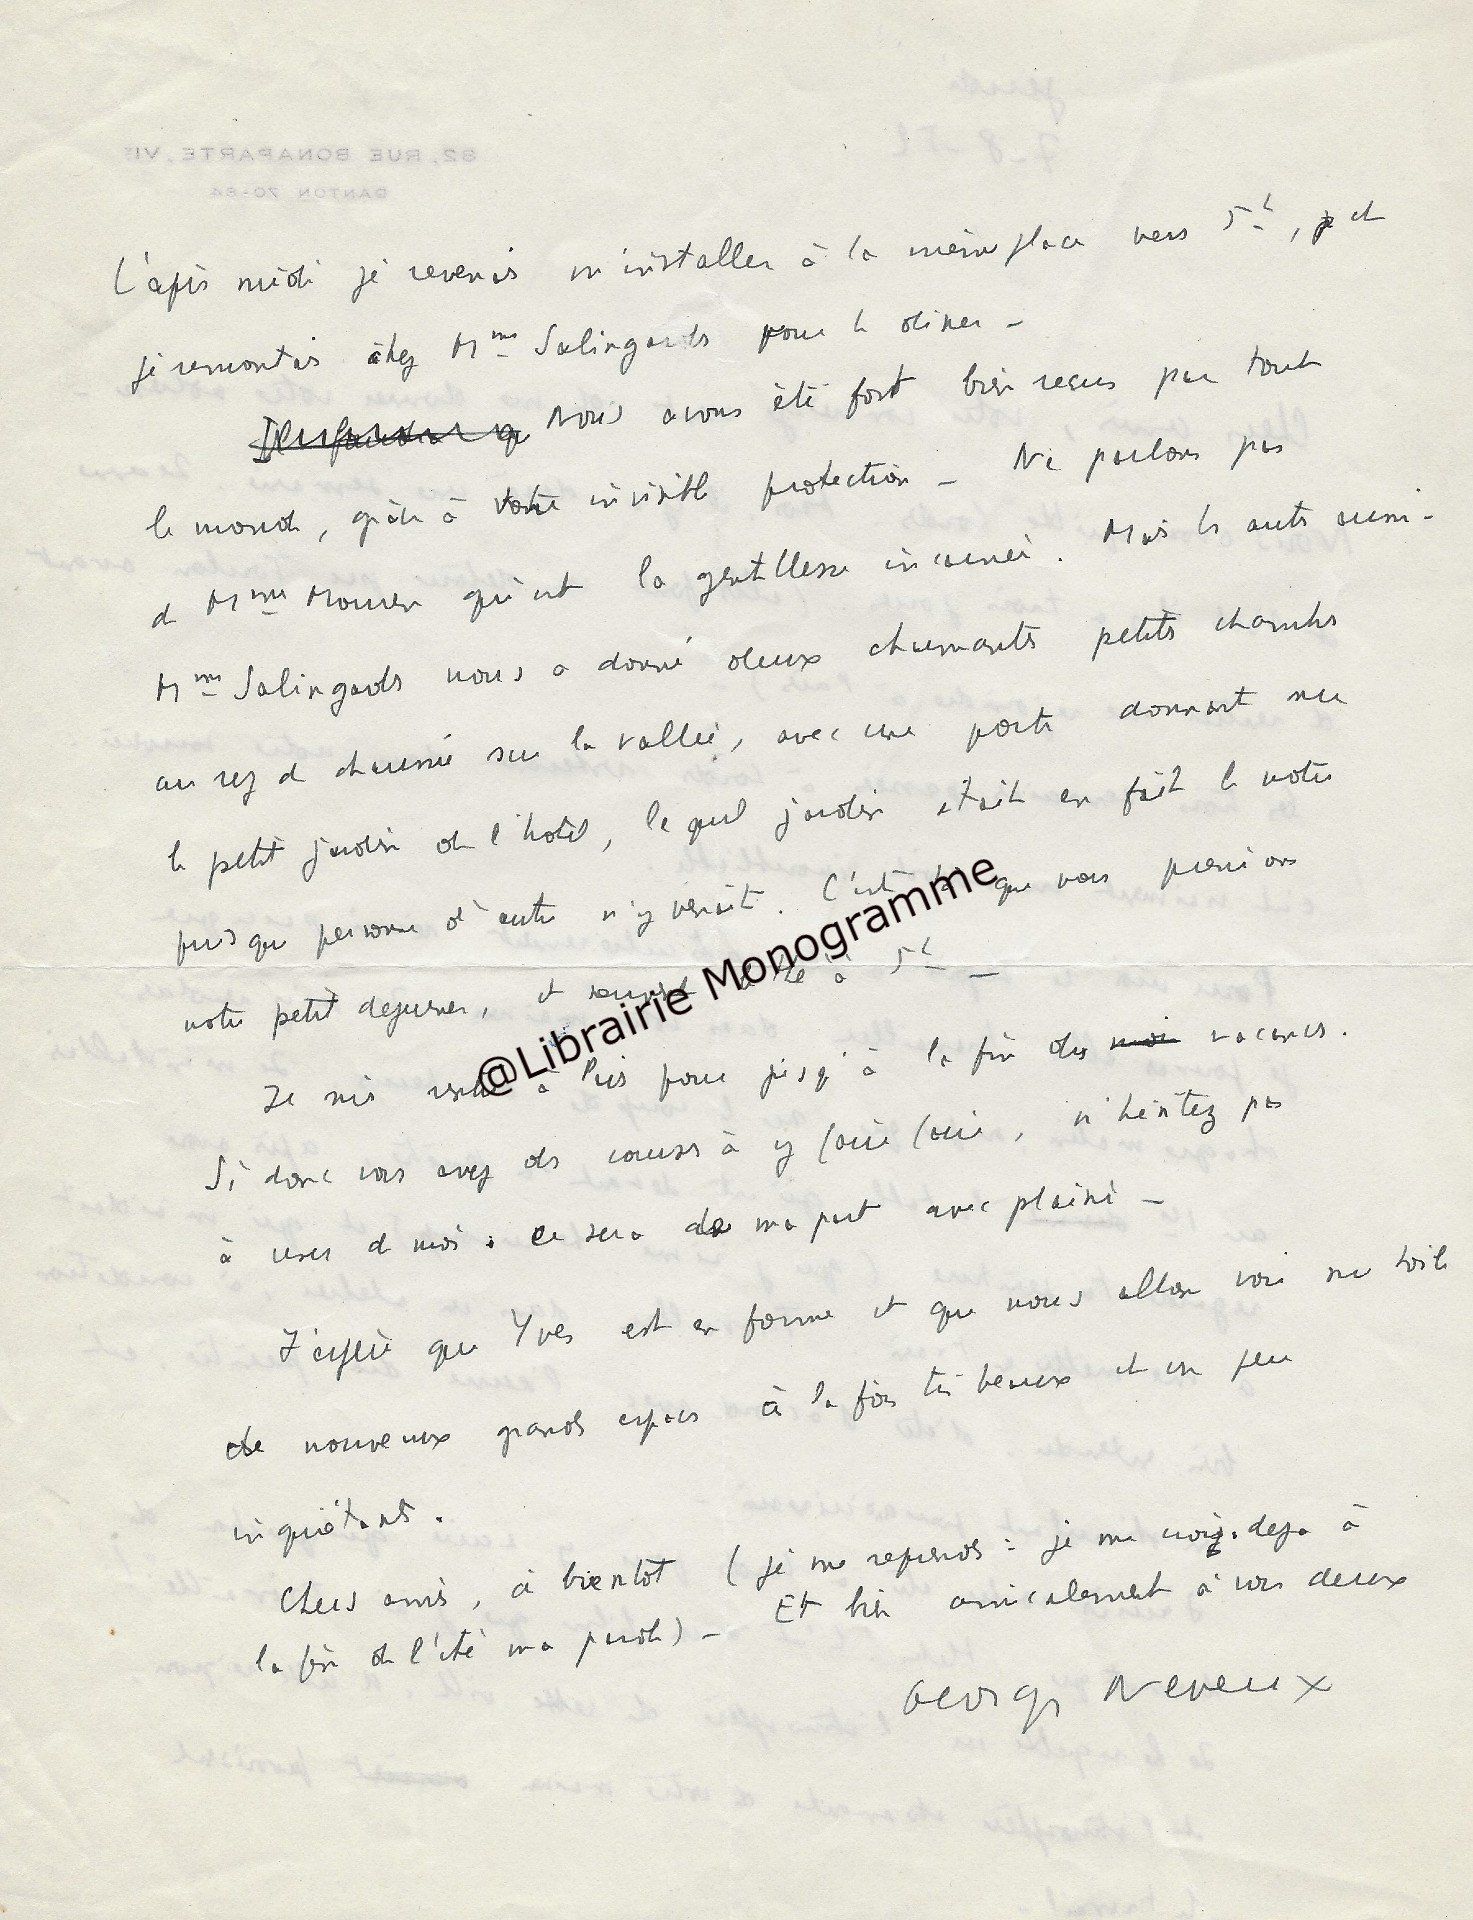 L'après midi je revenais m'installer à la même place vers 5h, et
je remontais chez Mme Salingards pour le diner -
Nous avons été fort bien reçus par tout
le monde, grâce à votre invisible protection - Ne parlons pas
de Mme Mourier qui est la gentillesse incarnée. Mais les autres aussi -
Mme Salingards nous a donné deux charmantes petites chambres
au rez de chaussée sur la vallée, avec une porte donnant sur
le petit jardin de l'hotel, le quel jardin était en fait le notre
puisque personne d'autre n'y venait. C'est là que nous prenions
notre petit dejeuner, et à 5h -
Je suis à Paris pour jusqu'à la fin des vacances.
Si donc vous avez des courses à y faire faire, n'hésitez pas
à user de moi. ce sera de ma part avec plaisir -
J'espère que Yves est en forme et que nous allons voir sur toile
de nouveaux grands espaces à la fois très beaux et un peu
inquiétants.
Chers amis, à bientôt (je me reprends : je me crois deja à
la fin de l'été ma parole) - Et bien amicalement à vous deux
Georges Neveux
82, RUE BONAPARTE, VIe
DANTON 70-84
@Librairie Monogramme